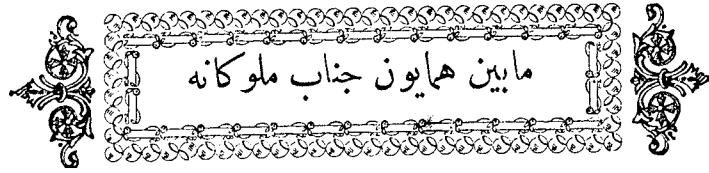 مابين همايون جناب ملوكانه